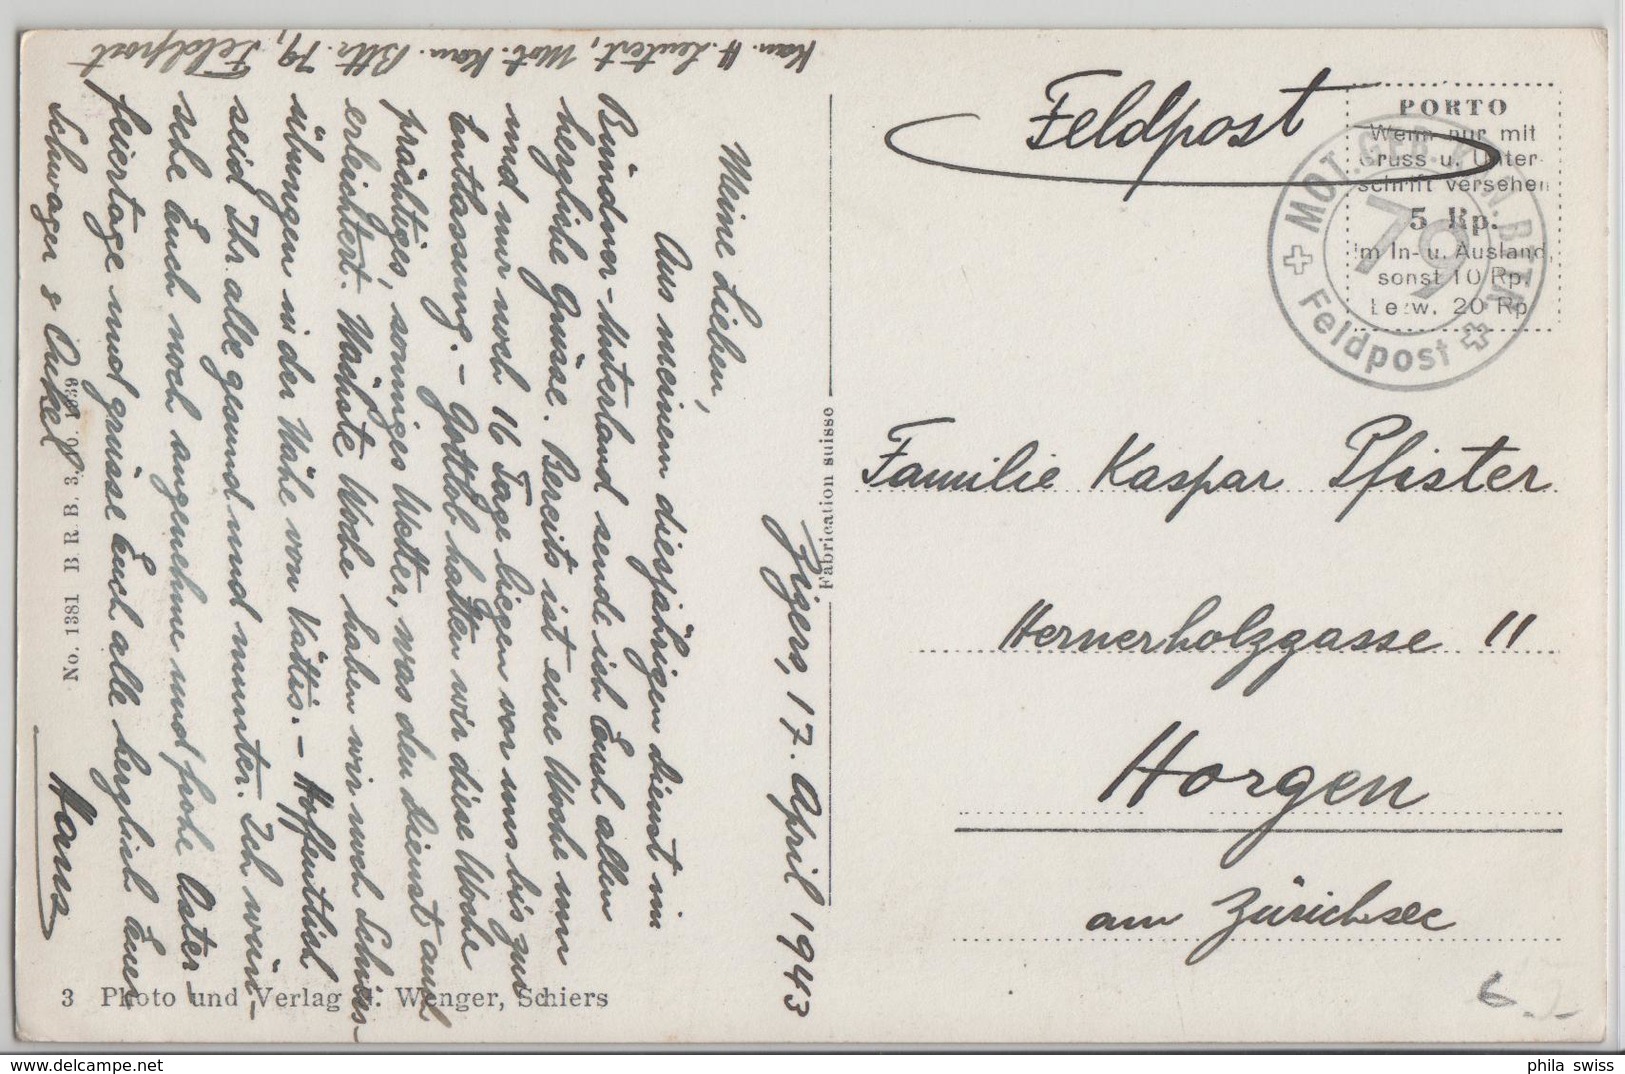 Kan. H. Leutert, Mot. Kan. Bttr. 79, Feldpost
Zizers, 17. April 1943
Meine Lieben,
Aus meinem diesjährigen Dienst im
Bündner-Unterland sende ich Euch allen
herzliche Grüsse. Bereits ist eine Woche um
und nur noch 16 Tage liegen vor uns bis zur
Entlassung. - Gottlob hatten wir diese Woche
prächtiges, sonniges Wetter, was den Dienst auch
erleichtert. Nächste Woche haben wir noch Schiess-
übungen in der Nähe von Vättis. - Hoffentlich
seid Ihr alle gesund und munter. Ich wün-
sche Euch noch angenehme und frohe Oster-
feiertage und grüsse Euch alle herzlich Euer
Schwager & Onkel
Hans
No. 1381 B R B. 3. 10. 1939
3 Photo und Verlag Wenger, Schiers
Fabrication suisse
Feldpost
PORTO
Wenn nur mit
Gruss u. Unter-
schrift versehen
5 Rp.
im In- u. Ausland,
sonst 10 Rp.
bezw. 20 Rp
MOT. GEB. KAN. BTTR.
79
Feldpost
Familie Kaspar Pfister
Hernerholzgasse 11
Horgen
am Zürichsee
6.-
phila swiss